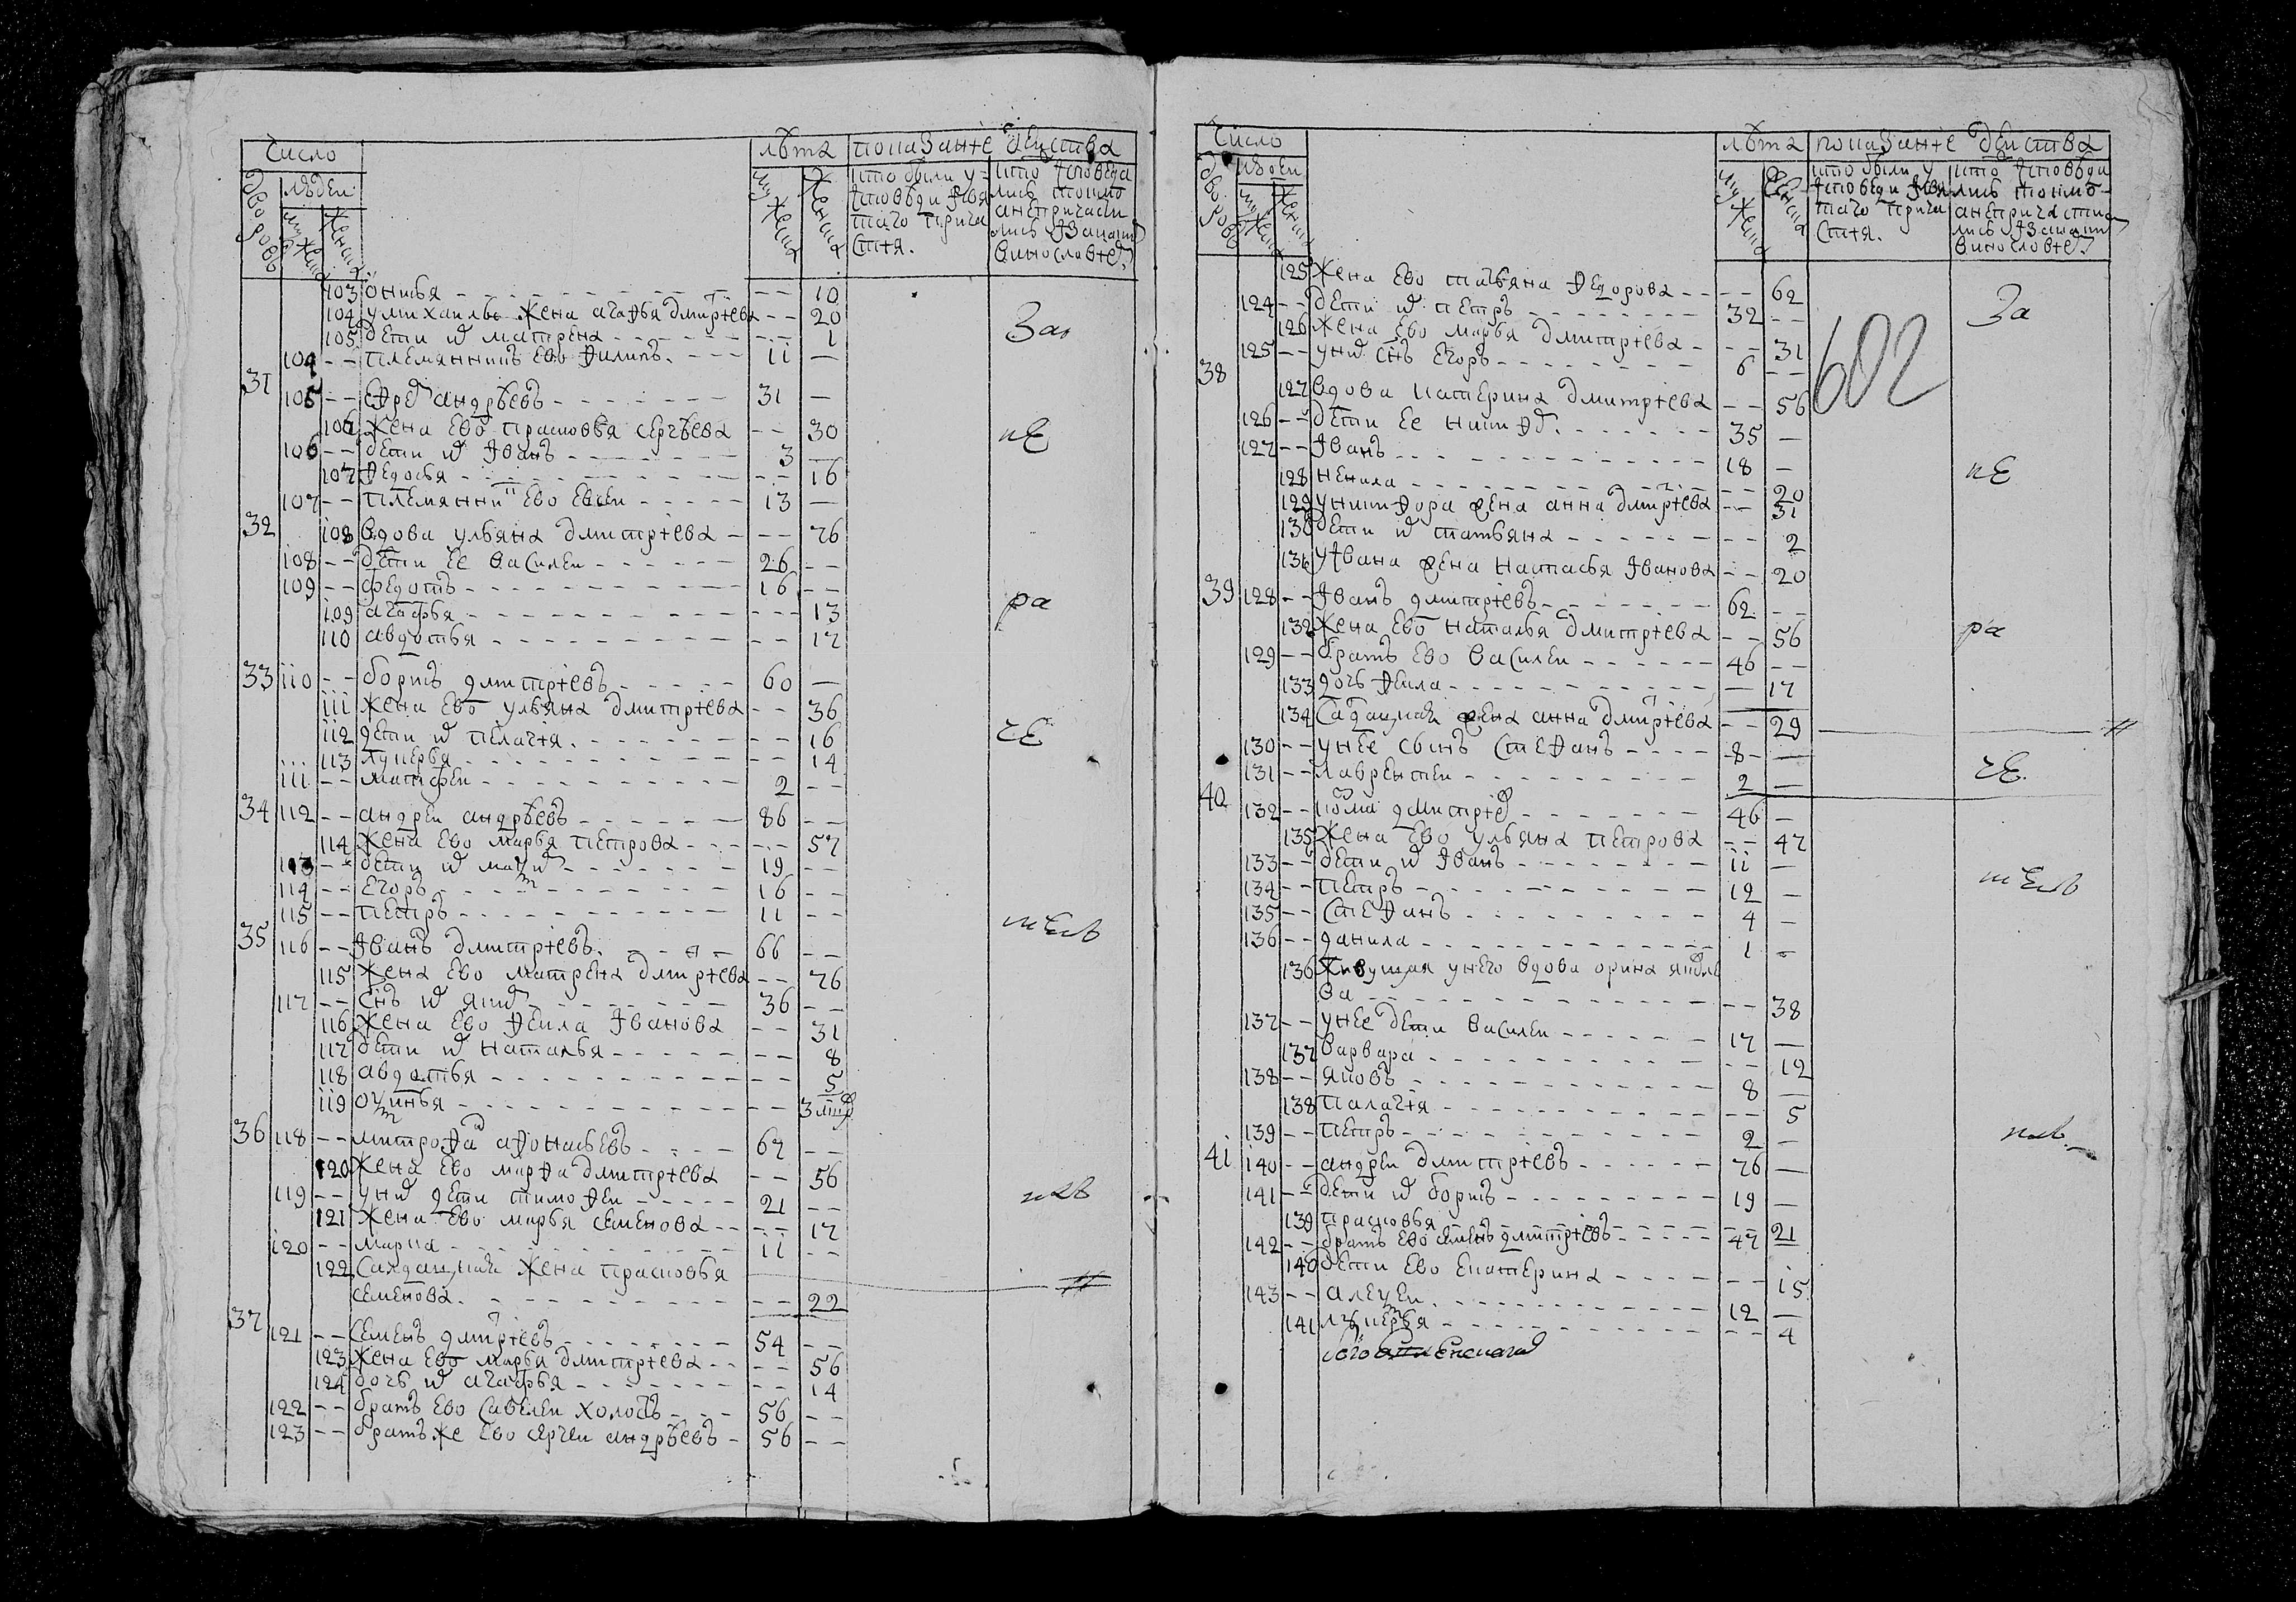 число
лѣта показание действа
дворовъ людеи
мужеска женска
мужеска женска
кто были у исповеди и святаго причастия.
кто исповедались токмо а не причастились и за каким винословием
103 онисья - - 10
104 у михаилы жена агафья дмитриева - - 20
105 дети их матрена - - 1
104 - - племянникъ ево филипъ. - - 11 —
31 105 - - ефремъ андрѣевъ - - 31 —
106 жена ево прасковья сергѣева - - 30
106 - - дети их иванъ - - 3 —
107 федосья - - 16
107 - - племянникъ ево евсеи - - 13 —
32 108 вдова ульяна дмитриева - - 76
108 - - дети ее василеи - - 26 - -
109 - - федотъ - - 16 - -
109 агафья - - 13
110 авдотья - - 17
33 110 - - борисъ дмитриевъ - - 60 —
111 жена ево ульяна дмитриева - - 36
112 дети их пелагия. - - 16
113 лукерья - - 14
111 - - матфеи - - 2 - -
34 112 - - андреи андрѣевъ - - 86 - -
114 жена ево марья петрова - - 57
113 - - дети их - - 19 - -
114 - - егоръ - - 16 - -
115 - - петръ - - 11 - -
35 116 - - иванъ дмитриевъ. - - 66 - -
115 жена ево матрена дмитриева - - 76
117 - - снъ их яким - - 36 - -
116 жена ево фекла иванова - - 31
117 дети их наталья - - 8
118 авдотья - - 5
119 - - 3
36 118 - - митрофан афонасьевъ - - 67 - -
120 жена ево марфа дмитриева - - 56
119 - - у них дети тимофеи - - 21 - -
121 жена ево марья семенова - - 17
120 - - марка - - 11 - -
122 салдацкая жена прасковья
семенова. - - 22
37 121 - - семенъ дмитриевъ - - 54 - -
123 жена ево марья дмитриева - - 56
124 дочь их агафья - - 14
122 - - братъ ево савелеи холостъ - - 56 - -
123 - - братъ же ево сергеи андрѣевъ - 56 - -
За
ке
ра
ге
число
лѣта показание действа
дворовъ людеи
мужеска женска
мужеска женска
кто были у исповеди и святаго причастия.
кто исповедались токмо а не причастились и за каким винословием
602
125 жена ево татьяна федорова - - 62
124 - - дети их петръ - - 32 - -
126 жена ево марья дмитриева - - 31
125 - - у них снъ егоръ - - 6 - -
38 127 вдова катерина дмитриева - - 56
126 - - дети ее никифор. - - 35 —
127 - - иванъ - - 18 —
128 ненила - - 20
129 у никифора жена анна дмитриева - - 31
130 дети их татьяна - - 2
131 у ивана жена настасья иванова - - 20
39 128 - - иванъ дмитриевъ - - 62 - -
132 жена ево наталья дмитриева - - 56
129 - - братъ ево василеи - - 46 - -
133 дочь фекла - - 17
134 салдацкая жена анна дмитриева - - 29
130 - - у нее сынъ стефанъ - - 8 —
131 - - лаврентеи - - 2 —
40 132 - - козма дмитриев - - 46 —
135 жена ево ульяна петрова - - 47
133 - - дети их иванъ - - 11 —
134 - - петръ - - 12 —
135 - - стефанъ - - 4 —
136 - - данила - - 1 —
136 живущая у него вдова орина яковле
ва - - 38
137 - - у нее дети василеи - - 17 —
137 варвара - - 12
138 - - яковъ - - 8 —
138 палагия - - 5
139 - - петръ - - 2 —
41 140 - - андреи дмитриевъ - - 76 —
141 - - дети их борисъ - - 19 —
139 прасковья - - 21
142 - - братъ ево семенъ дмитриевъ - - 47 —
140 дети ево екатерина - - 15
143 - - алексеи. - - 12 —
141 лукерья - - 4
За
ке
ра
ге.